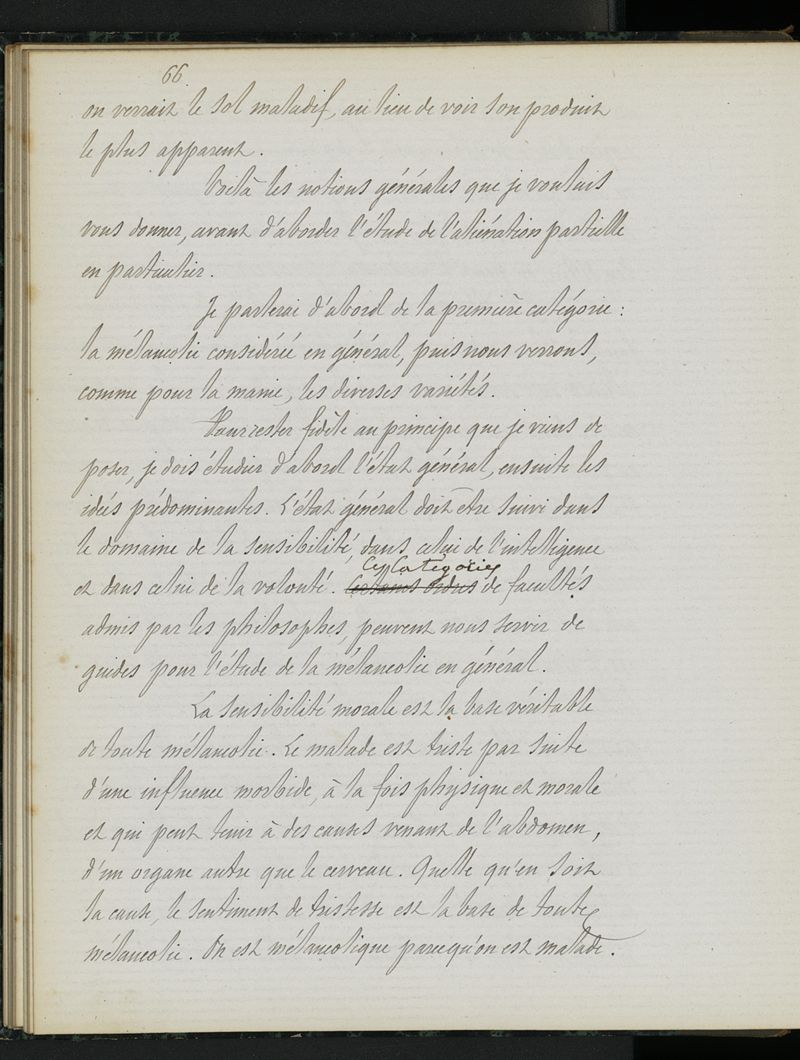 66
on verrait le sol maladif, au lieu de voir son produit
le plus apparent.
Voilà les notions générales que je voulais
vous donner, avant d'aborder l'étude de l'aliénation partielle
en particulier.
Je parlerai d'abord de la première catégorie :
la mélancolie considérée en général, puis nous verrons,
comme pour la manie, les diverses variétés.
Pour rester fidèle au principe que je viens de
poser, je dois étudier d'abord l'état général, ensuite les
idées prédominantes. L'état général doit être suivi dans
le domaine de la sensibilité, dans celui de l'intelligence
Ces Catégories
et dans celui de la volonté. ordres de facultés
admis par les philosophes, peuvent nous servir de
guides pour l'étude de la mélancolie en général.
La sensibilité morale est la base véritable
de toute mélancolie. Le malade est triste par suite
d'une influence morbide, à la fois physique et morale
et qui peut tenir à des causes venant de l'abdomen,
d'un organe autre que le cerveau. Quelle qu'en soit
la cause, le sentiment de tristesse est la base de toute
mélancolie. On est mélancolique parcequ'on est malade.